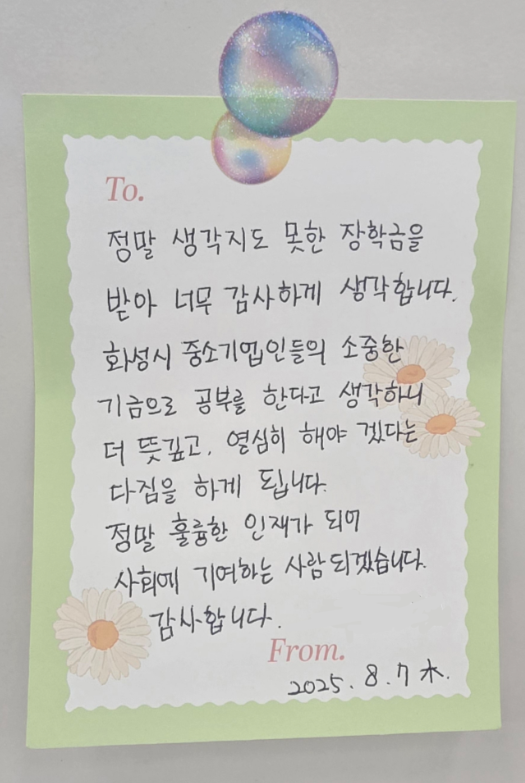 To.
정말 생각지도 못한 장학금을
받아 너무 감사하게 생각합니다.
화성시 중소기업인들의 소중한
기금으로 공부를 한다고 생각하니
더 뜻깊고, 열심히 해야 겠다는
다짐을 하게 됩니다.
정말 훌륭한 인재가 되어
사회에 기여하는 사람되겠습니다.
감사합니다.
From.
2025. 8. 7 木.